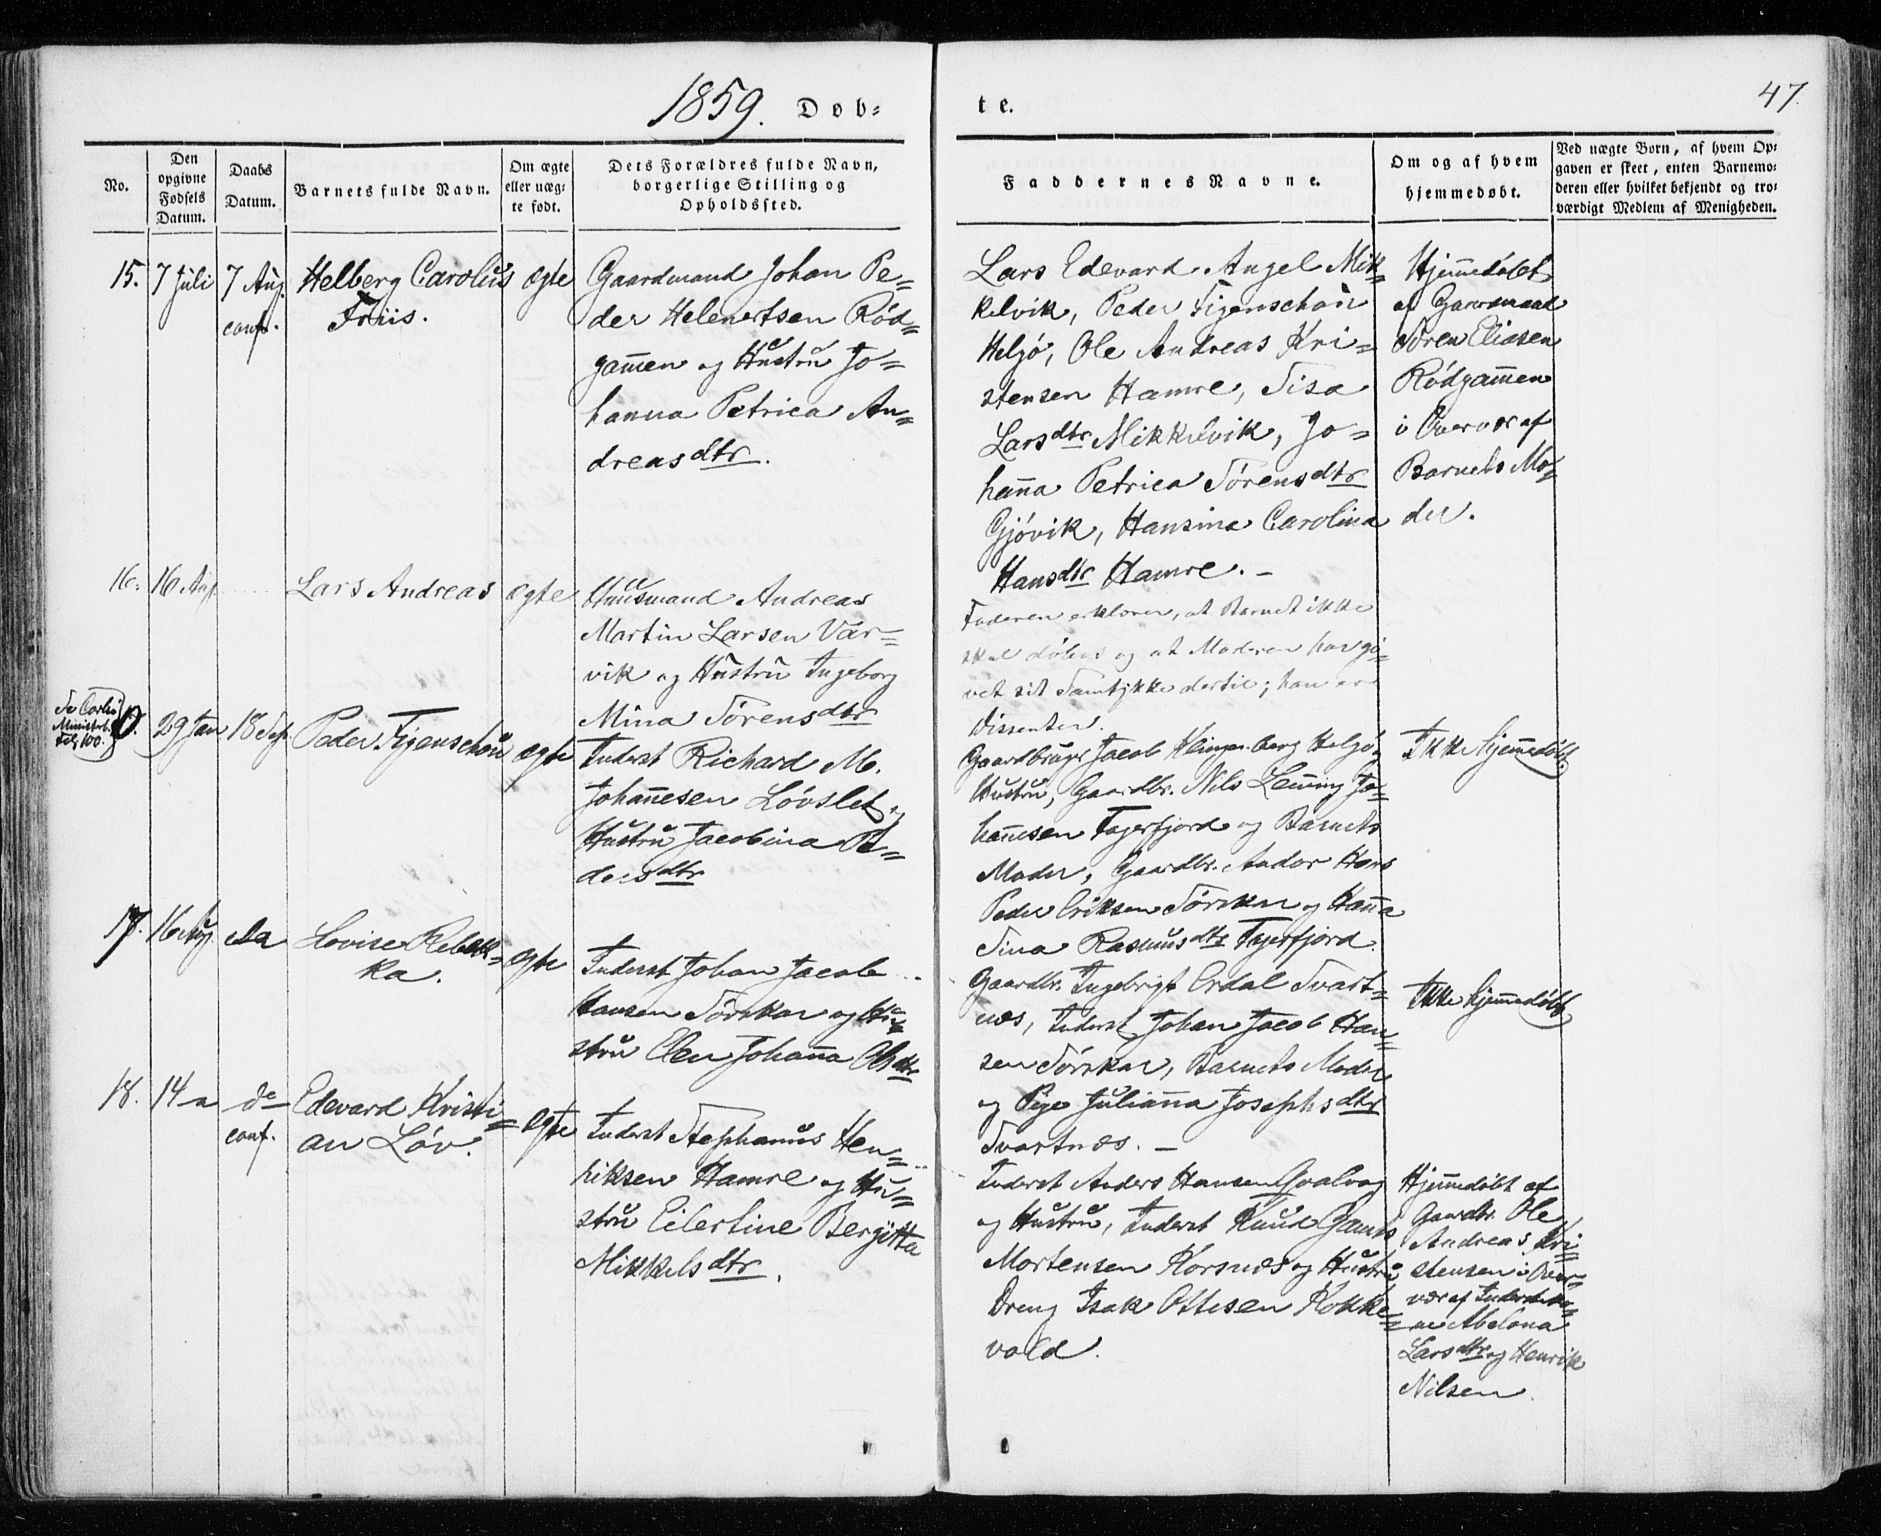 1859. Døb=
te.
47.
No.
Den opgivne Fødsels Datum.
Daabs Datum.
Barnets fulde Navn.
Om ægte eller uæg= te født.
Dets Forældres fulde Navn, borgerlige Stilling og Opholdssted.
Faddernes Navne.
Om og af hvem hjemmedøbt.
Ved uægte Børn, af hvem Op=
gaven er skeet, enten Barnemo=
deren eller hvilket bekjendt og tro=
værdigt Medlem af Menigheden.
15. 7 Juli 7 Aug. conf.
Helberg Carolus
Friis.
ægte
Gaardmand Johan Pe=
der Helenertsen Rød=
gam̄en og Hustru Jo=
hanna Petrica An=
dreasdtr.
Lars Edevard Angel Mik=
kelvik, Peder Figenschou
Helgø, Ole Andreas Kri=
stensen Hamre,
Larsdtr Mikkelvik, Jo=
han̄a Petrica Sørensdtr
Gjøvik, Hansina Carolina
Hansdtr Hamre. –
Hjem̄edøbt
af Gaardmand
Søren Eliasen
Rødgam̄en
i Overvær af
Barnets Mo=
der.
16. 16 Aug.
Lars Andreas
ægte
Huusmand Andreas
Martin Larsen Var=
vik og Hustru Ingeborg
Mina Sørensdtr
Faderen erklærer, at Barnet ikke
skal døbes og at Moderen har gi=
vet sit Samtykke dertil; han er
Dissenter.
Se Carlsø
Ministerb.
Fol. 100.
29 Jan 18 Sept.
Peder Figenschou
ægte
Inderst Richard M.
Johan̄esen Løvslet og
Hustru Jacobina Pe=
dersdtr
Gaardbruger Jacob Klingenberg Helgø,
Hustru, Gaardbr. Nils Lem̄ing Jo=
han̄esen Fagerfjord og Barnets
Moder, Gaardbr. Andor Hans
Peder Eriksen Sørskar og Han̄a
Sina Rasmusdtr Fagerfjord.
Ikke hjem̄edøbt.
17. 16 Aug. da
Lovise Rebek=
ka.
ægte
Inderst Johan Jacob
Hansen Sørskar og Hu=
stru Elen Johan̄a Olsdtr
Gaardbr. Ingebrigt Erdal Svart=
næs, Inderst Johan Jacob Han=
sen Sørskar, Barnets Moder
og Pige Julian̄a Josephsdtr
Svartnæs. –
Ikke hjem̄edøbt
18. 14 conf.
Edevard Kristi=
an Løv.
ægte
Inderst Stephanus Hen=
riksen Hamre og Hu=
stru Eilertine Bergitta
Mikkelsdtr.
Inderst Anders Hansen Gvalvag
og Hustru, Inderst Knud
Mortensen Korsnæs og Hustru
Dreng Isak Ottesen Kokke=
vold.
Hjem̄edøbt af
Gaardbr. Ole
Andreas Kri=
stensen i Over=
vær af Inderstko=
ne Abelona
Larsdtr og Henrik
Nilsen.